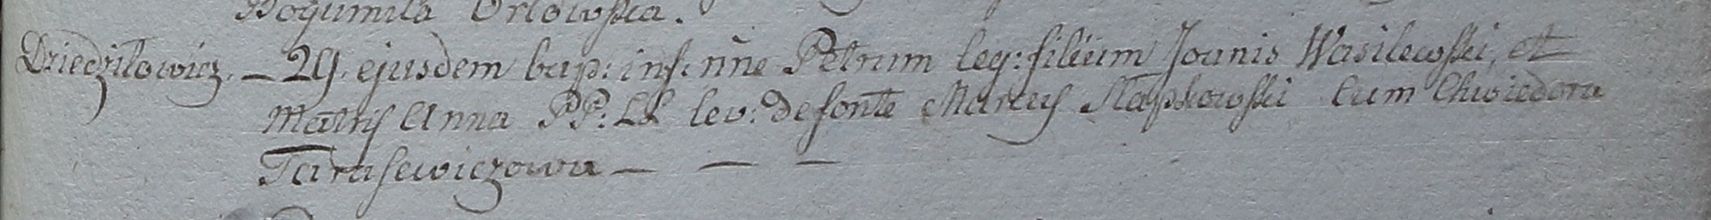 Bogumila Orlowska.
Dziedzilowicz. — 29. ejusdem bap: inf: nñe Petrum leg: filium Joanis Wasilewski, et
Matris Anna PP: LL lev: de fonte Marcus Slapkowski cum Chwiedora
Tarasewiczowa — — —